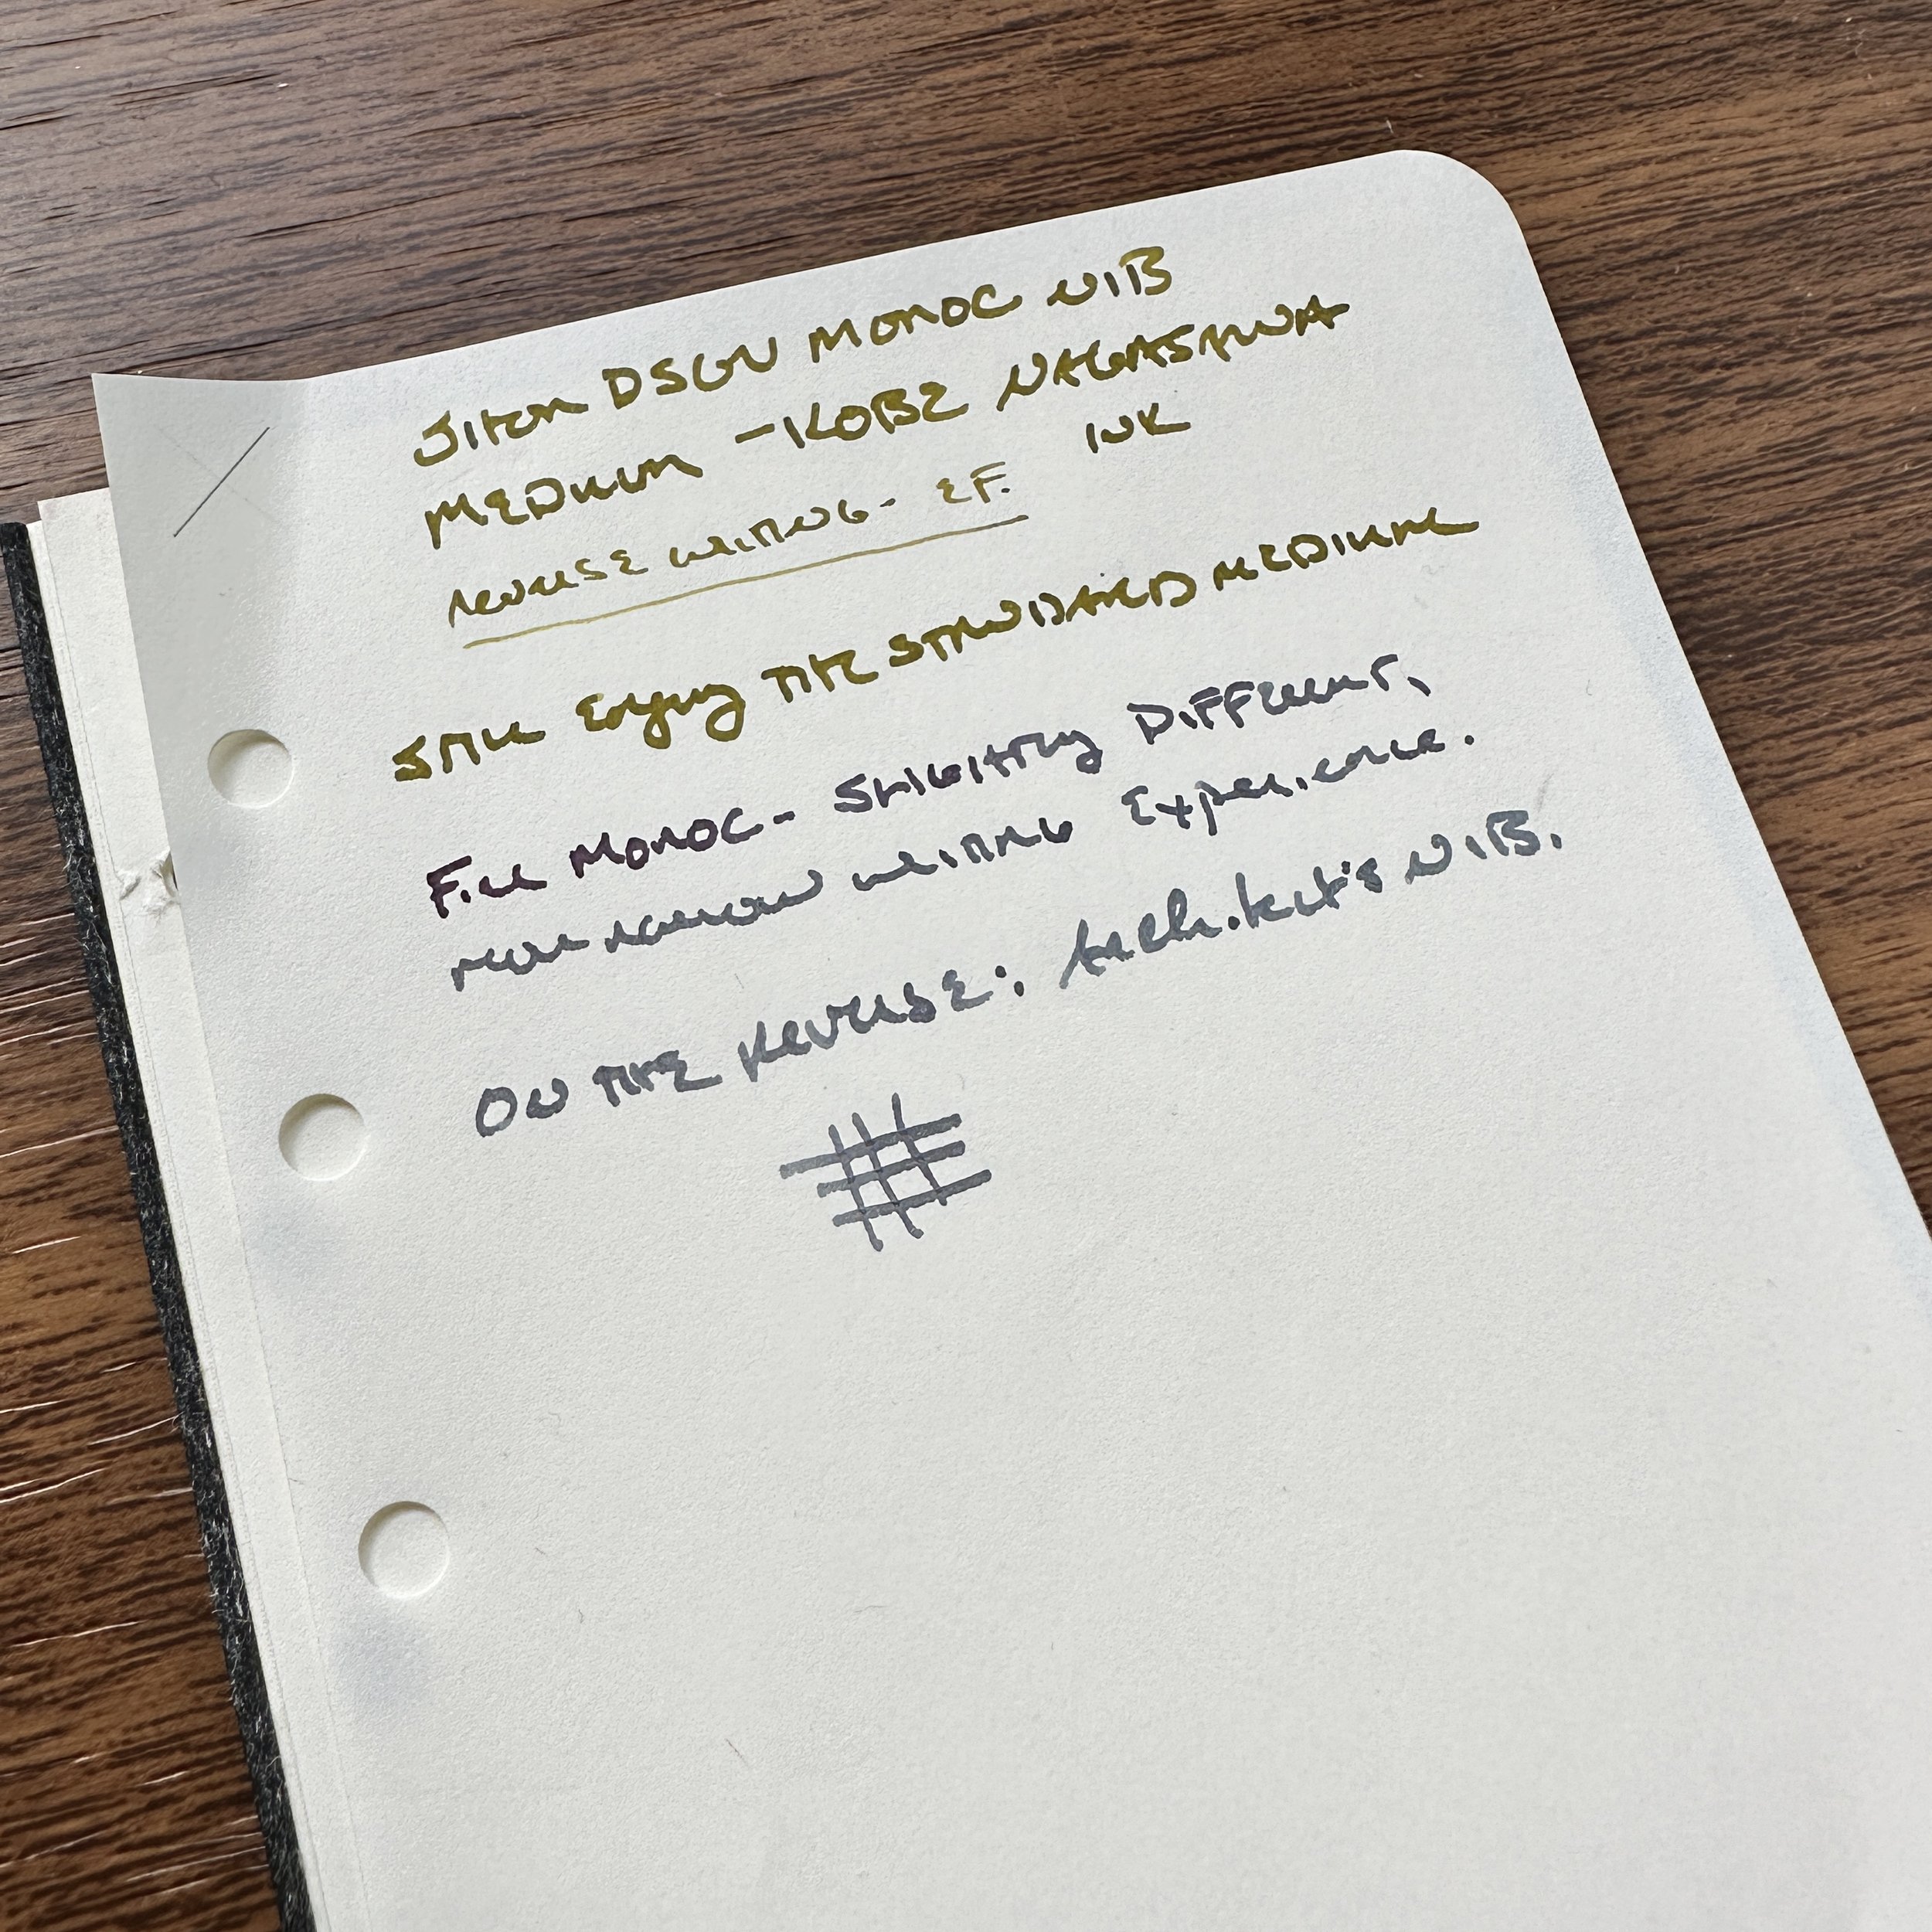 DSGN MONOC NIB
MEDIUM - KOBE NAGASAWA
INK
REVERSE WRITING - EF.
STILL Enjoying THE STANDARD MEDIUM
FINE MONOC - SLIGHTLY DIFFERENT,
more narrow WRITING Experience.
ON THE REVERSE: Architect's NIB.